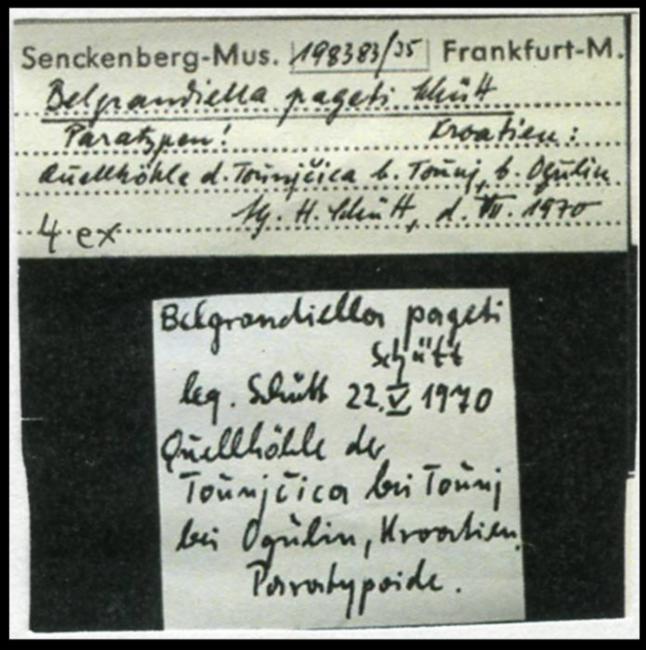 Senckenberg-Mus. 198383/35 Frankfurt-M.
Belgrandiella pageti Schütt
Paratypen! Kroatien:
Quellhöhle d. Tounjčica b. Tounj, b. Ogulin
H. Schütt, d. VII. 1970
4 ex
Belgrandiella pageti
Schütt
leg. Schütt 22.V 1970
Quellhöhle der
Tounjčica bei Tounj
bei Ogulin, Kroatien.
Paratypoide.